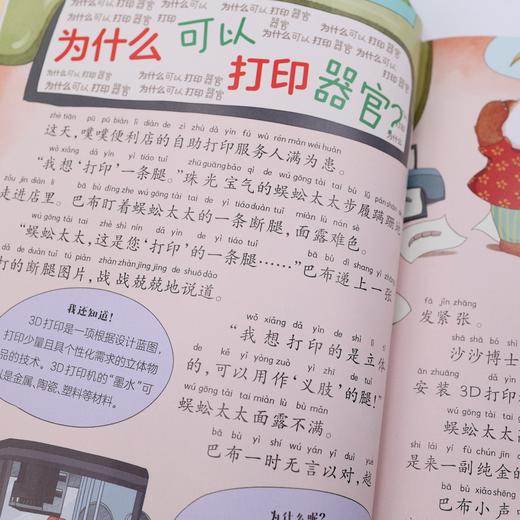 为什么可以打印器官?
zhè tiān pū pū biàn lì diàn de zì zhù dǎ yìn fú wù rén mǎn wéi huàn
这天，噗噗便利店的自助打印服务人满为患。
wǒ xiǎng dǎ yìn yì tiáo tuǐ zhū guāng bǎo qì de wú gōng tài tai bù lǚ pán shān de
“我想‘打印’一条腿。”珠光宝气的蜈蚣太太步履蹒跚地
zǒu jìn diàn lǐ bā bù dīng zhe wú gōng tài tai de yì tiáo duàn tuǐ miàn lù nán sè
走进店里。巴布盯着蜈蚣太太的一条断腿，面露难色。
wú gōng tài tai zhè shì nín dǎ yìn de yì tiáo tuǐ bā bù dì shang yì zhāng
“蜈蚣太太，这是您‘打印’的一条腿……”巴布递上一张
dǎ de duàn tuǐ tú piàn zhàn zhàn jīng jīng de shuō dào
打的断腿图片，战战兢兢地说道。
我还知道！
3D打印是一项根据设计蓝图，
打印少量且具个性化需求的立体物
品的技术。3D打印机的“墨水”可
以是金属、陶瓷、塑料等材料。
wǒ xiǎng dǎ yìn de shì lì tǐ
“我想打印的是立体
de kě yǐ yòng zuò yì zhī de tuǐ
的，可以用作‘义肢’的腿！”
wú gōng tài tai miàn lù bù mǎn
蜈蚣太太面露不满。
bā bù yì shí wú yán yǐ duì
巴布一时无言以对，
为什么呢？
fā jǐn zhāng
发紧张。
沙沙博士
ān zhuāng
安装3D打印
wú gōng tài tai
蜈蚣太太
shì lái yí fù chún jīn de
是来一副纯金的
bā bù xiǎo shēng
巴布小声